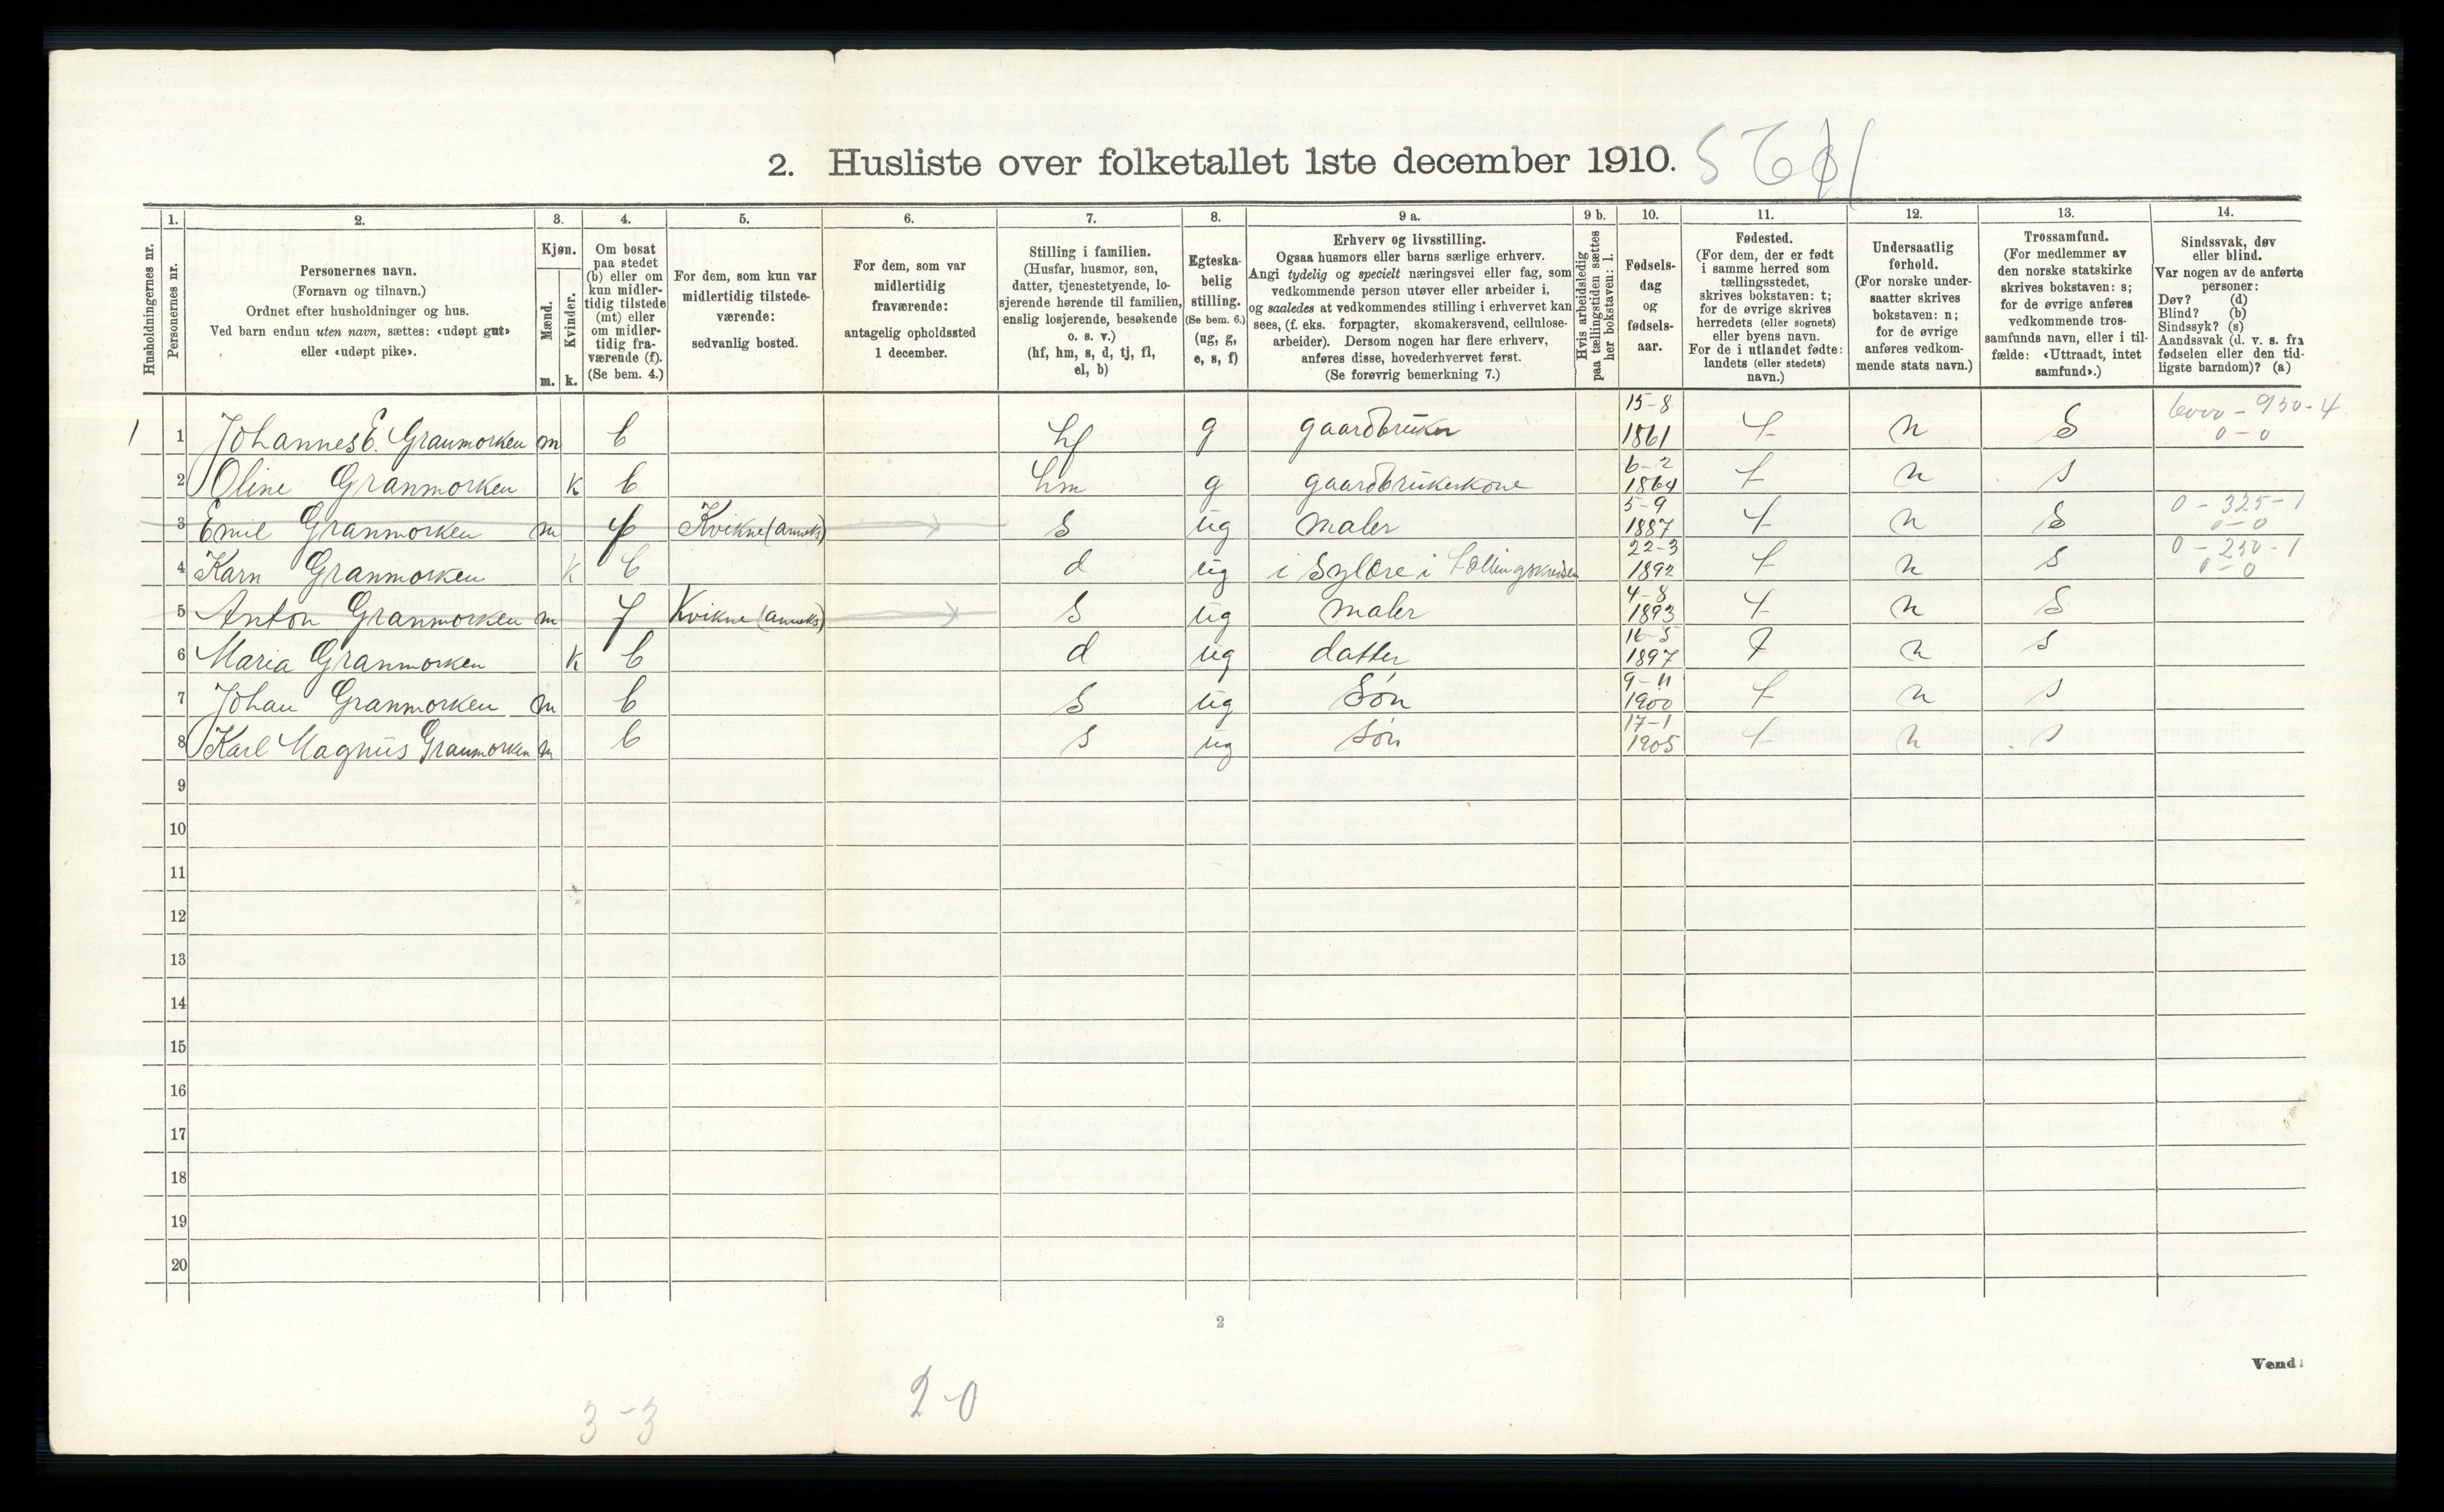 2. Husliste over folketallet 1ste december 1910.
1. 2. 3. 4. 5. 6. 7. 8. 9 a. 9 b. 10. 11. 12. 13. 14.
Husholdningernes nr.
Personernes nr.
Personernes navn.
(Fornavn og tilnavn.)
Ordnet efter husholdninger og hus.
Ved barn endnu uten navn, sættes: «udøpt gut»
eller «udøpt pike».
Kjøn.
Mænd.
Kvinder.
m. k.
Om bosat
paa stedet
(b) eller om
kun midler-
tidig tilstede
(mt) eller
om midler-
tidig fra-
værende (f).
(Se bem. 4.)
For dem, som kun var
midlertidig tilstede-
værende:
sedvanlig bosted.
For dem, som var
midlertidig
fraværende:
antagelig opholdssted
1 december.
Stilling i familien.
(Husfar, husmor, søn,
datter, tjenestetyende, lo-
sjerende hørende til familien,
enslig losjerende, besøkende
o. s. v.)
(hf, hm, s, d, tj, fl,
el, b)
Egteska-
belig
stilling.
(Se bem. 6.)
(ug, g,
e, s, f)
Erhverv og livsstilling.
Ogsaa husmors eller barns særlige erhverv.
Angi tydelig og specielt næringsvei eller fag, som
vedkommende person utøver eller arbeider i,
og saaledes at vedkommendes stilling i erhvervet kan
sees, (f. eks. forpagter, skomakersvend, cellulose-
arbeider). Dersom nogen har flere erhverv,
anføres disse, hovederhvervet først.
(Se forøvrig bemerkning 7.)
Hvis arbeidsledig
paa tællingstiden sættes
her bokstaven: l.
Fødsels-
dag
og
fødsels-
aar.
Fødested.
(For dem, der er født
i samme herred som
tællingsstedet,
skrives bokstaven: t;
for de øvrige skrives
herredets (eller sognets)
eller byens navn.
For de i utlandet fødte:
landets (eller stedets)
navn.)
Undersaatlig
forhold.
(For norske under-
saatter skrives
bokstaven: n;
for de øvrige
anføres vedkom-
mende stats navn.)
Trossamfund.
(For medlemmer av
den norske statskirke
skrives bokstaven: s;
for de øvrige anføres
vedkommende tros-
samfunds navn, eller i til-
fælde: «Uttraadt, intet
samfund».)
Sindssvak, døv
eller blind.
Var nogen av de anførte
personer:
Døv? (d)
Blind? (b)
Sindssyk? (s)
Aandssvak (d. v. s. fra
fødselen eller den tid-
ligste barndom)? (a)
1 1 Johannes E. Granmorken m b hf g gaardbruker 15-8 1861 t n S 6000-950-4 0-0
2 Oline Granmorken k b hm g gaardbrukerkone 6-2 1864 t n s
3 Emil Granmorken m f Kvikne (anneks) s ug maler 5-9 1887 t n S 0-325-1 0-0
4 Karn Granmorken k b d ug i Sylære i tællingskredsen 22-3 1892 t n s 0-250-1 0-0
5 Anton Granmorken m f Kvikne (anneks) s ug maler 4-8 1893 t n S
6 Maria Granmorken k b d ug datter 16-5 1897 t n s
7 Johan Granmorken m b s ug Søn 9-11 1900 t n s
8 Karl Magnus Granmorken m b s ug søn 17-1 1905 t n s
9
10
11
12
13
14
15
16
17
18
19
20
2
Vend!
3-3 2-0